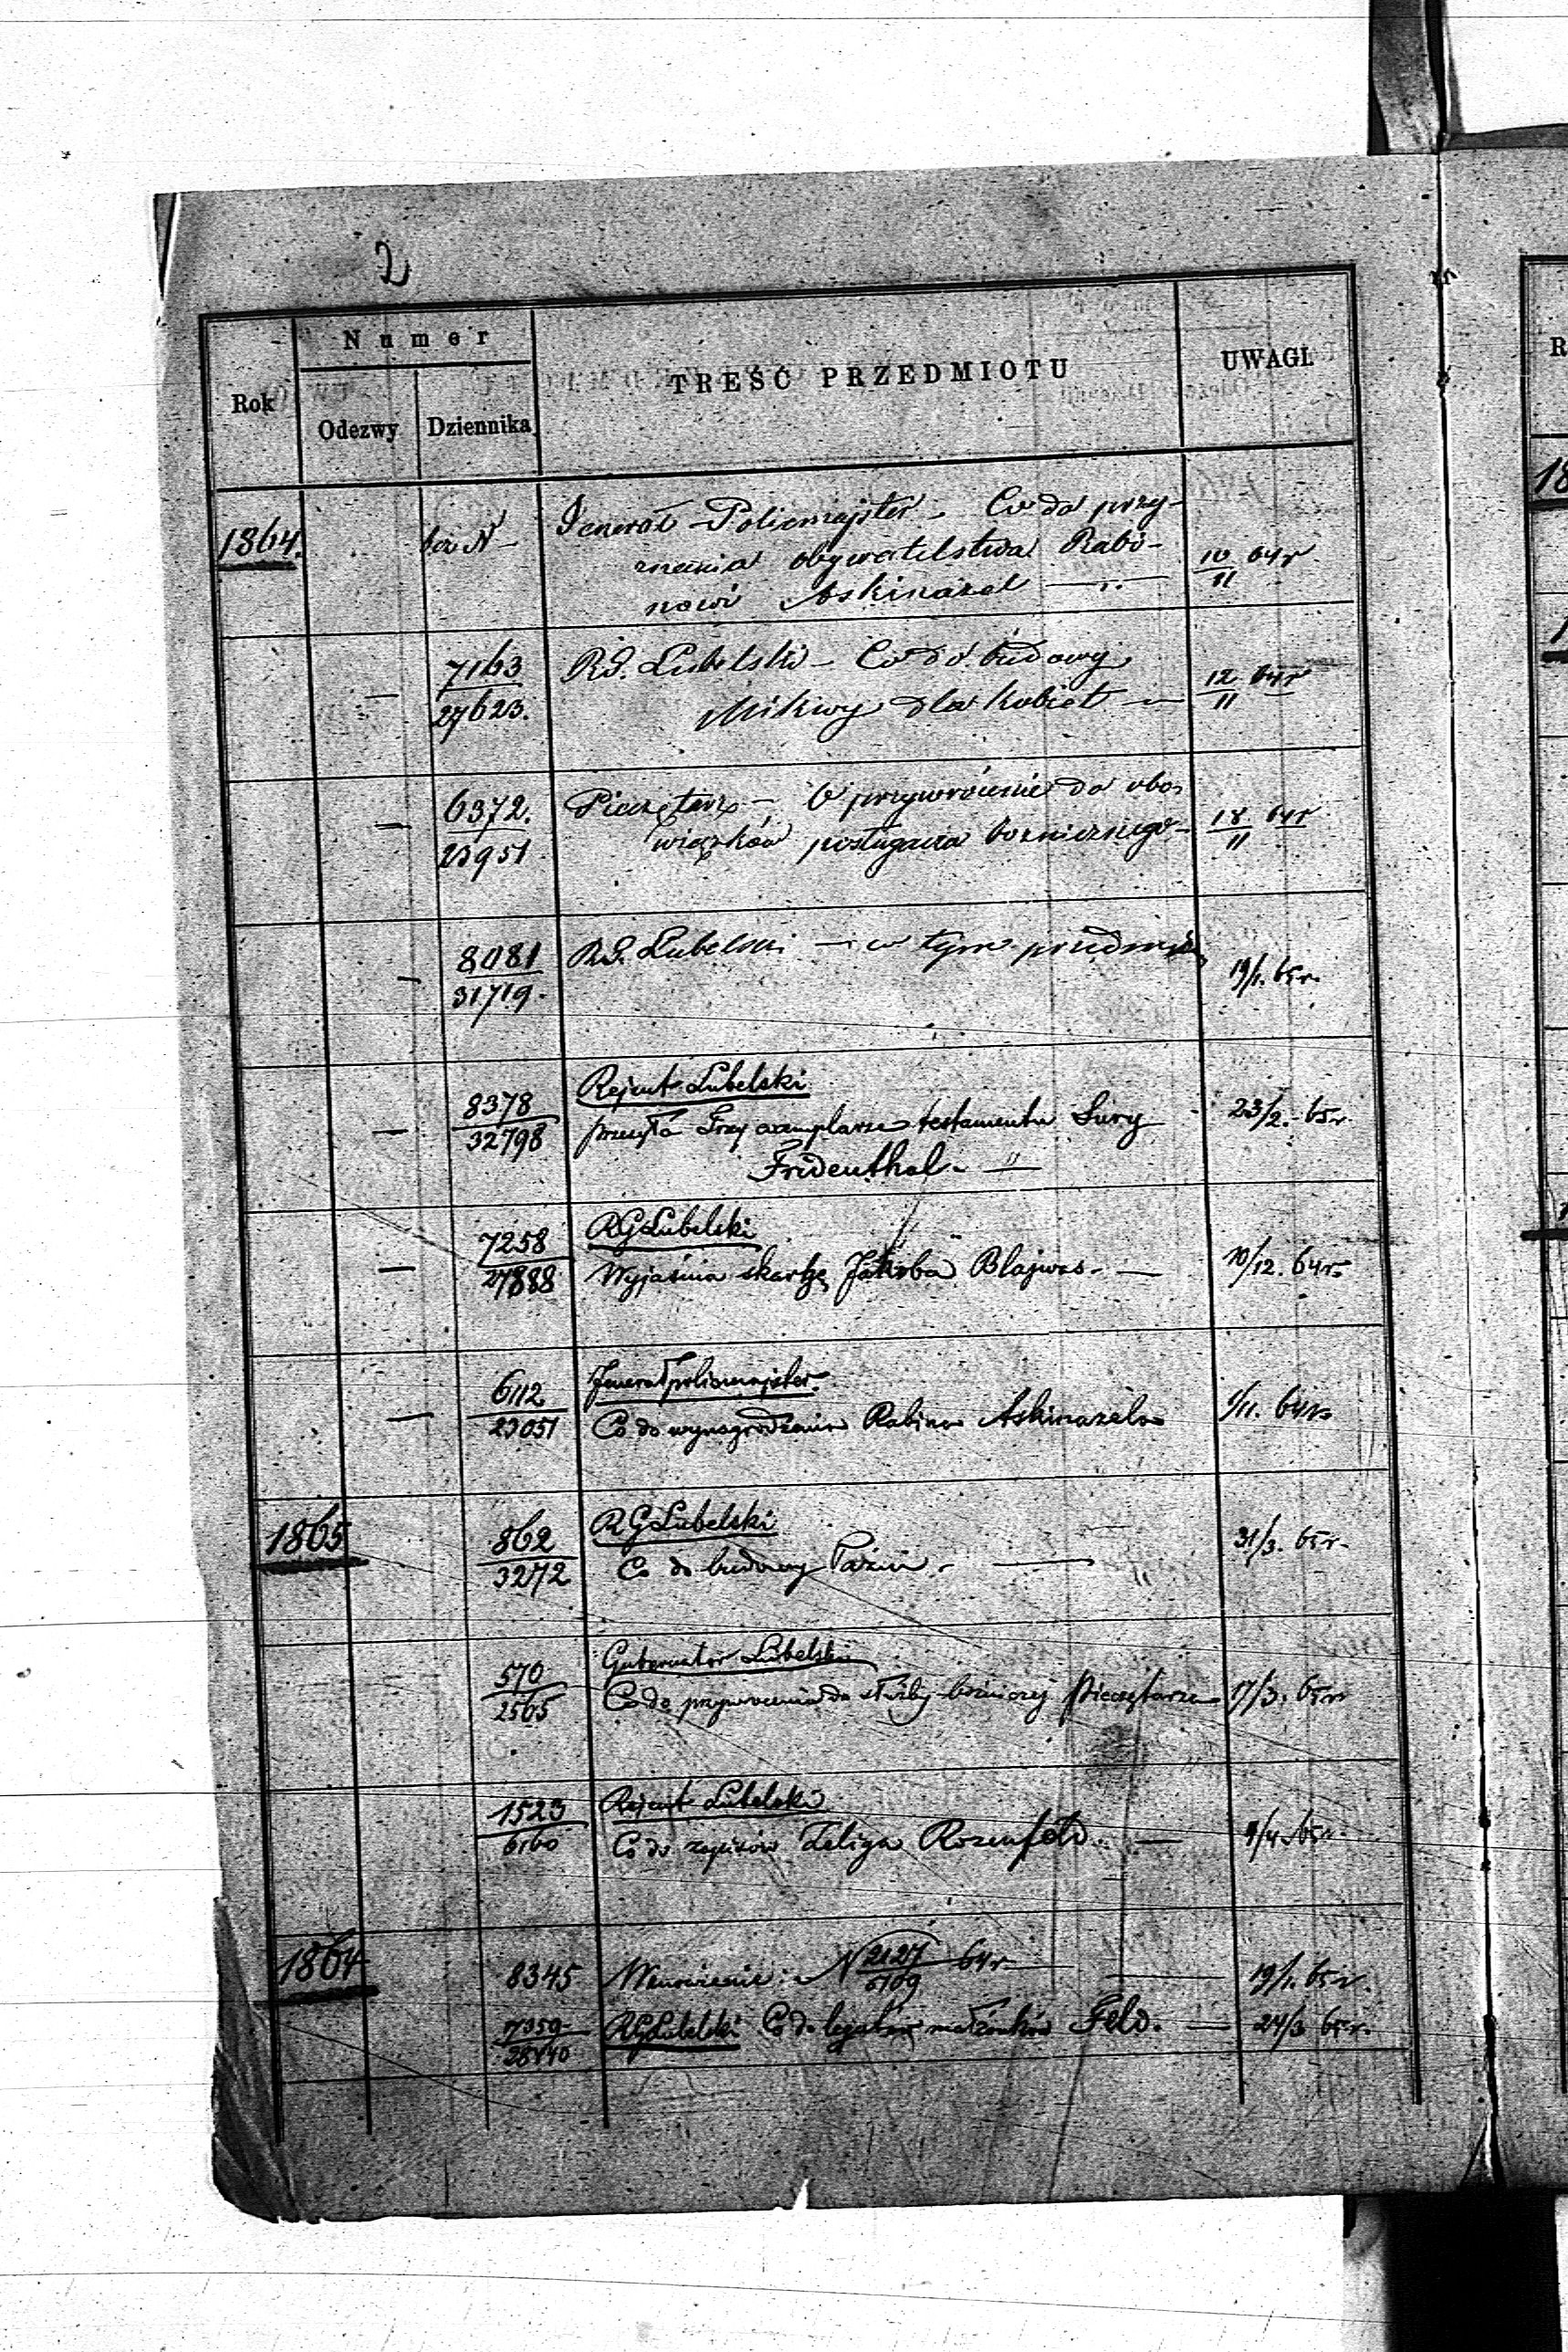 2
Numer
Rok
Odezwy
Dziennika
TREŚĆ PRZEDMIOTU
UWAGI.
1864.
bez N
Jenerał-Policmajster - Co do przy-
znania obywatelstwa Rabi-
nowi Askinazel
10/11 64r
7163/27623.
R.G. Lubelski - Co do budowy
Mikwy dla kobiet
12/11 64r
6372./23951
Pieczętarz - O przywrócenie do obo-
wiązków posługacza bożniczego
18/11 64r
8081/31719.
R.G. Lubelski - w tym przedmio
19/1. 65r.
8378/32798
Rejent Lubelski
przesyła Trzy exemplarze testamentu Sury
Fridenthal.
23/2. 65r
7258/27888
RGLubelski
Wyjaśnia skargę Jakóba Blajwas.
10/12. 64r.
6112/23051
Jenerałpolicmajster.
Co do wynagrodzenia Rabina Askinazela
1/11. 64r
1865
862/3272
RGLubelski
Co do budowy Łaźni.
31/3. 65r.
570/2565
Gubernator Lubelski
Co do przywrócenia do służby bożniczej Pieczętarza
17/3. 65r
1523/6160
Rejent Lubelski
Co do zapisów Zeliga Rozenfeld.
/4 65r.
1864
8345
Wznowienie N 2127/6109 64r
19/1. 65r.
7359/28440
RGLubelski Co do legatów małżonków Feld.
24/3 65r.